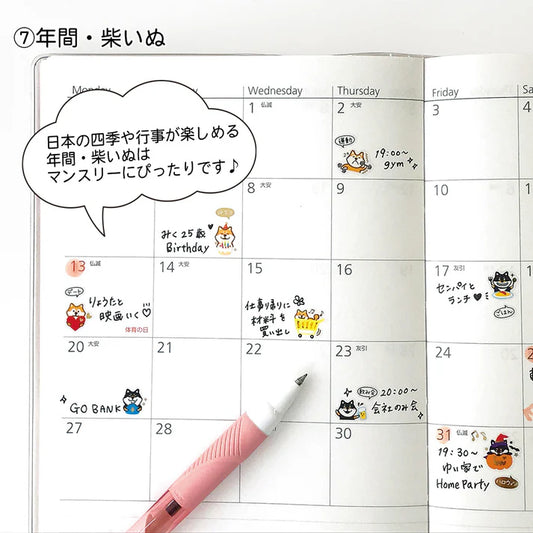 ⑦年間・柴いぬ
日本の四季や行事が楽しめる
年間・柴いぬは
マンスリーにぴったりです♪
Monday
Wednesday
Thursday
Friday
1 仏滅
2 大安
3
運動
19:00~
gym
8 大安
9
10
みく25歳
Birthday
13 仏滅
14 大安
15
16
17 友引
デート
りょうたと
映画いく♡
体育の日
仕事帰りに
材料を
買い出し
センパイと
ランチ♥
ごはん
20 大安
21
22
23 友引
24
GO BANK
飲み会
20:00~
会社のみ会
27
28
30
31 仏滅
19:30~
ゆい家で
Home Party
ハロウィン